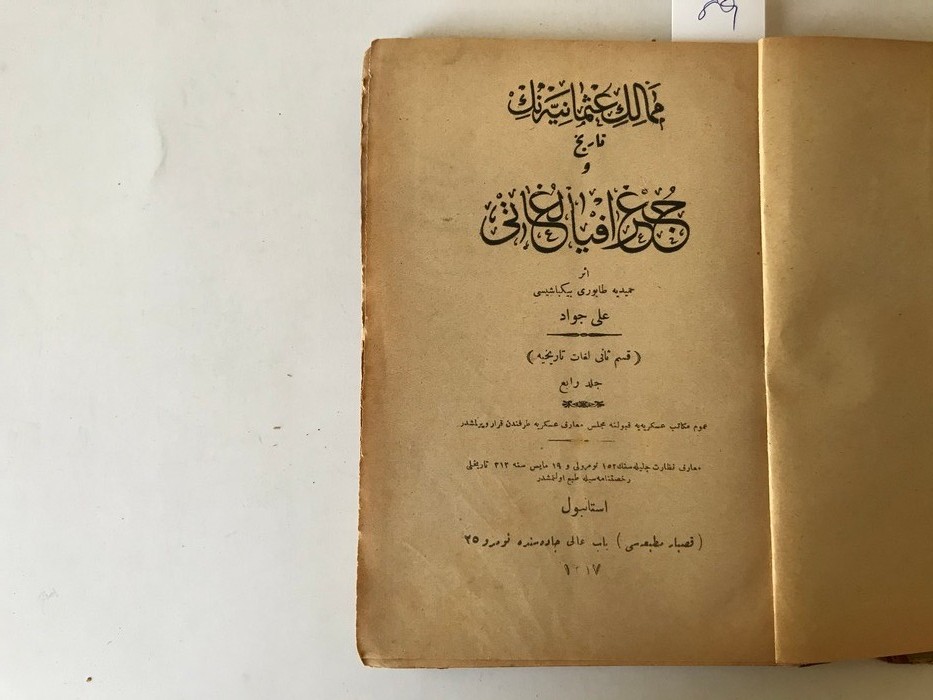 ممالك عثمانیه‌نك
تاریخ
و
جغرافیا لغاتی
اثر
حمیدیه طابوری بیكباشیسی
علی جواد
( قسم ثانی لغات تاریخیه )
جلد رابع
عموم مكاتب عسكریه‌یه قبولنه مجلس معارف عسكریه طرفندن قرار ویرلمشدر
معارف نظارت جلیله‌سنك ١٥٢ نومرولی و ١٩ مایس سنه ٣١٣ تاریخلی
رخصتنامه‌سیله طبع اولنمشدر
استانبول
( قصبار مطبعه‌سی ) باب عالی جاده‌سنده نومرو ٢٥